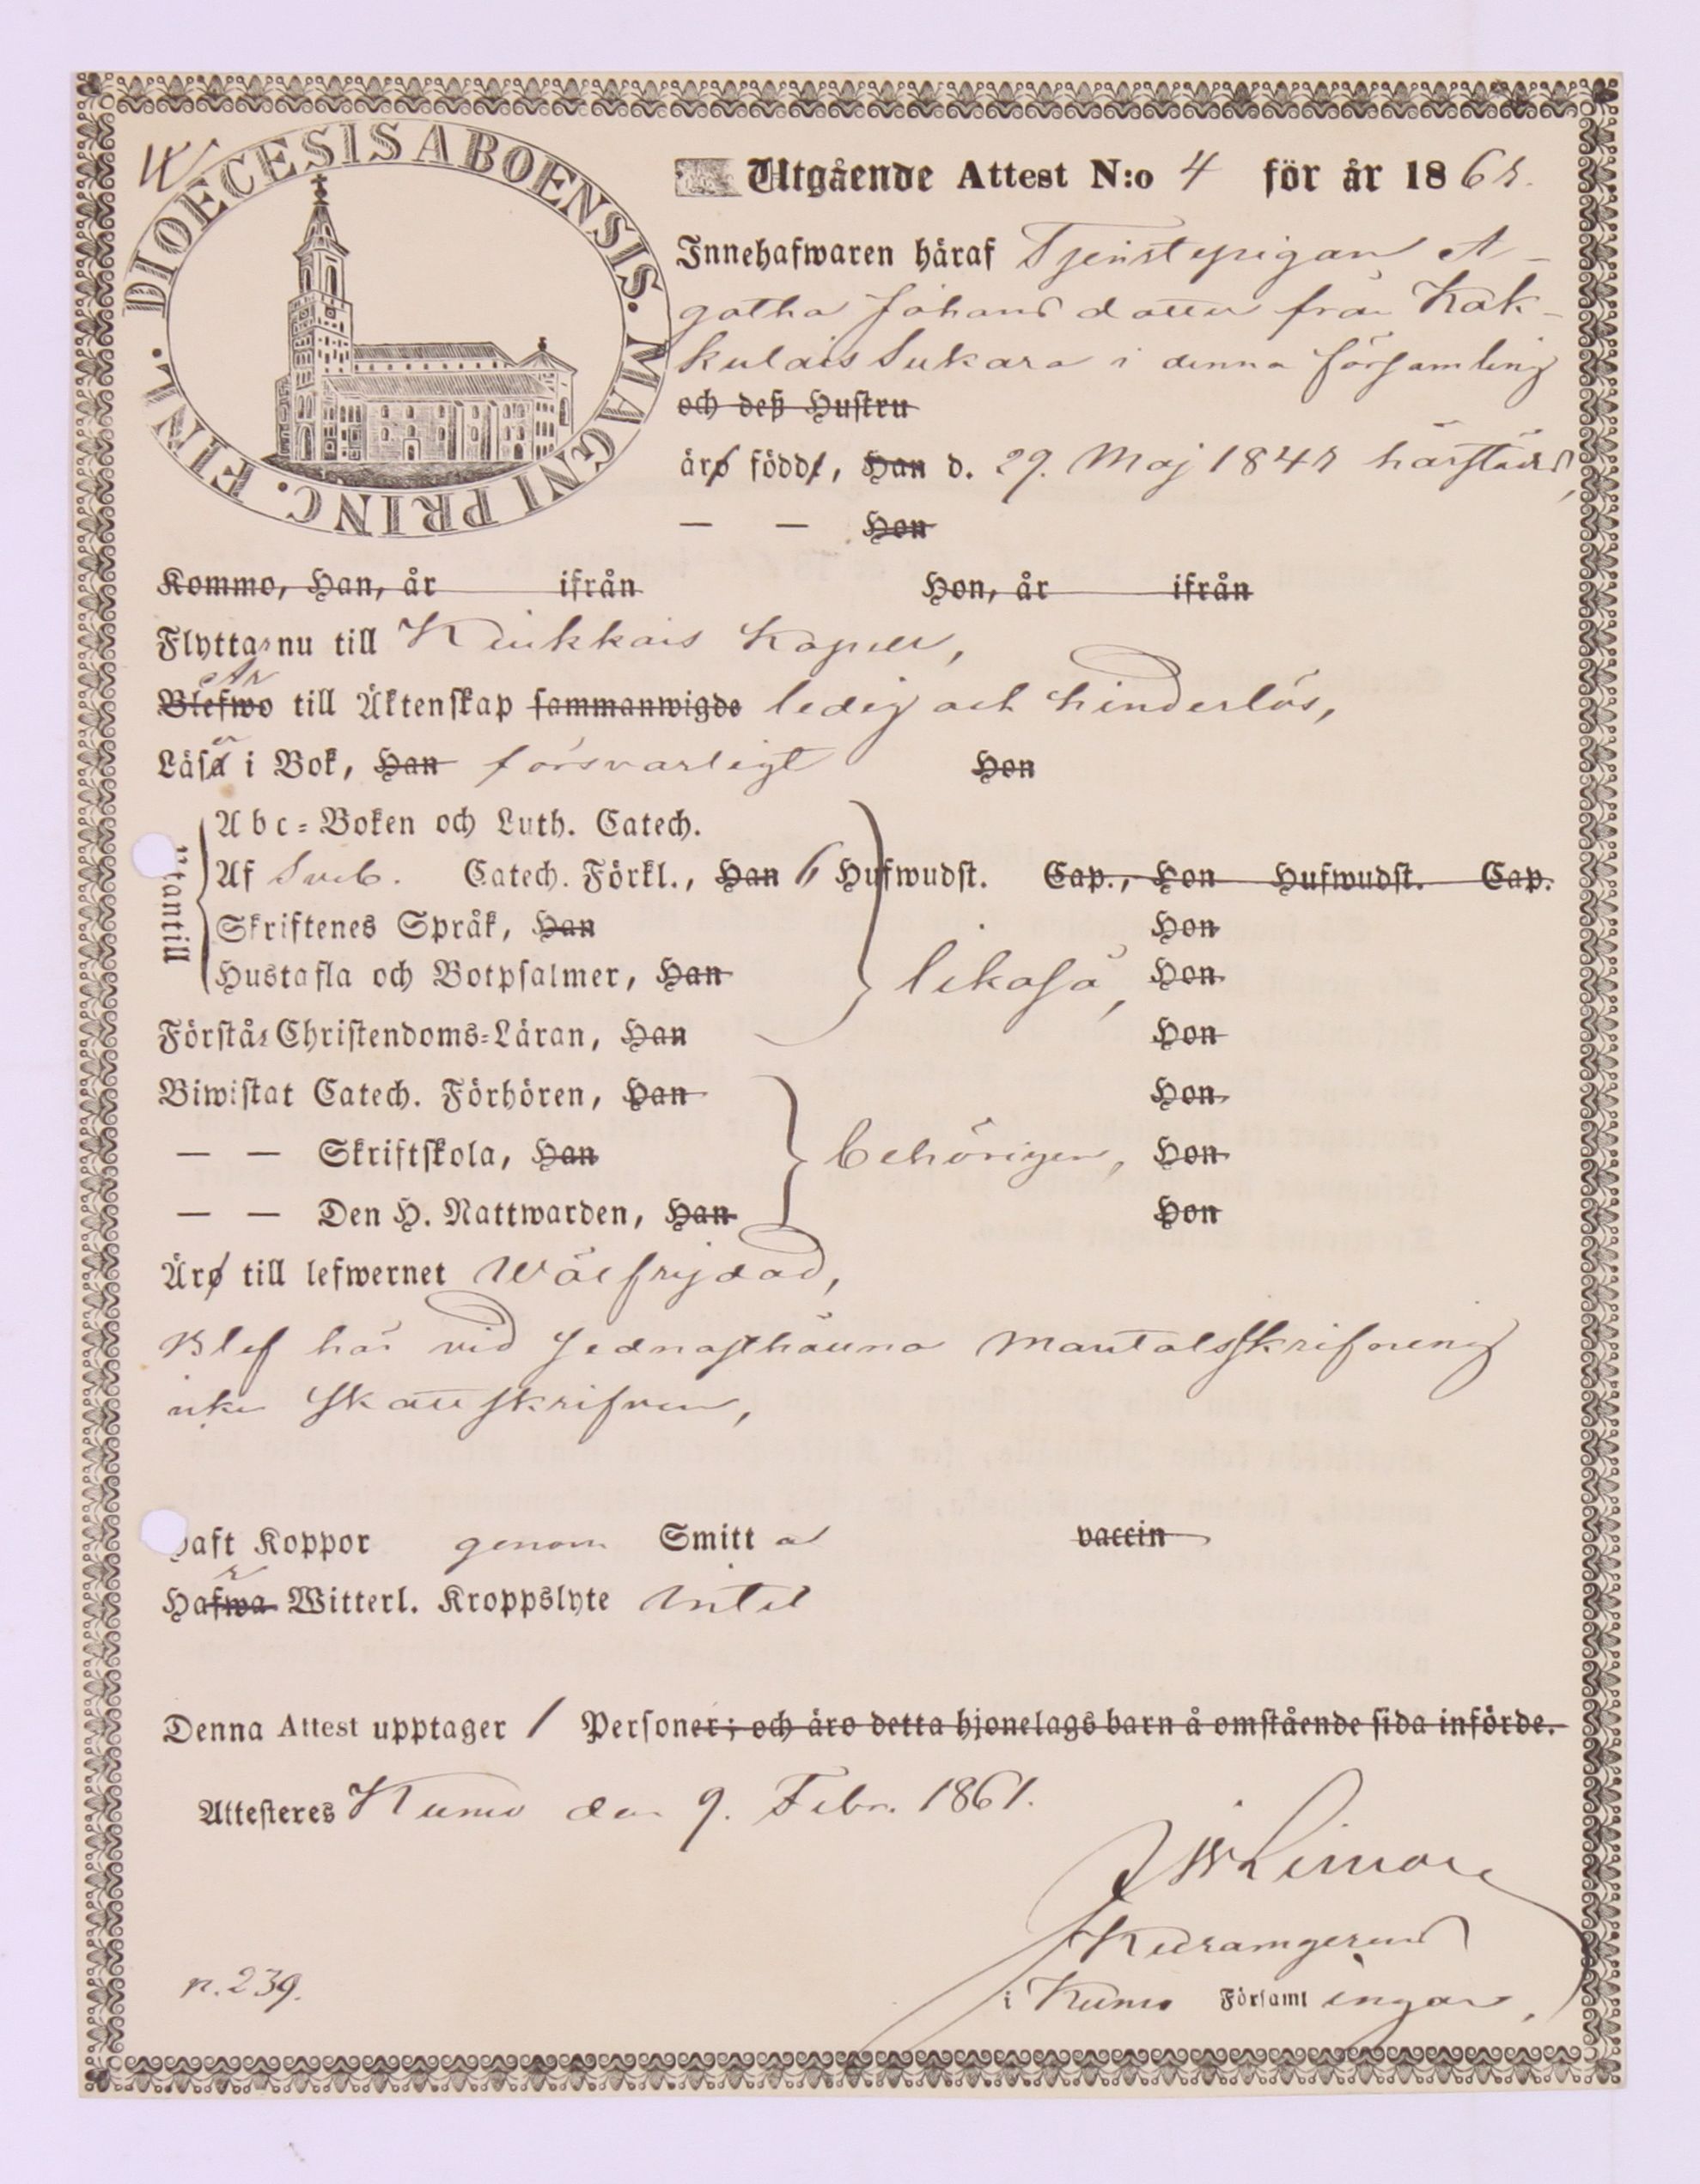 W
DIOECESIS ABOENSIS. MAGNI PRINC. FINL.
Utgående Attest N:o 4 för år 1861.
Innehafwaren häraf Tjenstepigan A-
gatha Johansdotter från Kak-
kulais Sukara i denna församling
och deß Hustru
äro född, Han d. 29. Maj 1841 härstädes,
— — Hon
Kommo, Han, år ifrån Hon, år ifrån
Flyttar nu till Kiukkais Kapell,
Är
Blefwo till Äktenskap sammanwigde ledig och hinderlös,
Läser i Bok, Han försvarligt Hon
Abc-Boken och Luth. Catech.
Utantill
Af Sveb. Catech. Förkl., Han 6 Hufwudst. Cap., Hon Hufwudst. Cap.
Skriftenes Språk, Han Hon
Hustafla och Botpsalmer, Han likaså, Hon
Förstår Christendoms-Läran, Han Hon
Biwistat Catech. Förhören, Han Hon
— — Skriftskola, Han behörigen, Hon
— — Den H. Nattwarden, Han Hon
Äro till lefwernet wälfrejdad,
Blef här vid sednasthållna mantalsskrifning
icke skattskrifven,
Haft Koppor genom Smitta vaccin
Hafwa Witterl. Kroppslyte intet
Denna Attest upptager 1 Personer; och äro detta hjonelags barn å omstående sida införde.
Attesteres Kumo den 9. Febr. 1861.
Kuramgerens
p. 239.
i Kumo Församlingar,